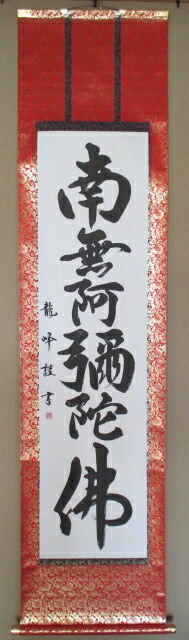 南無阿彌陀佛
龍峰謹書